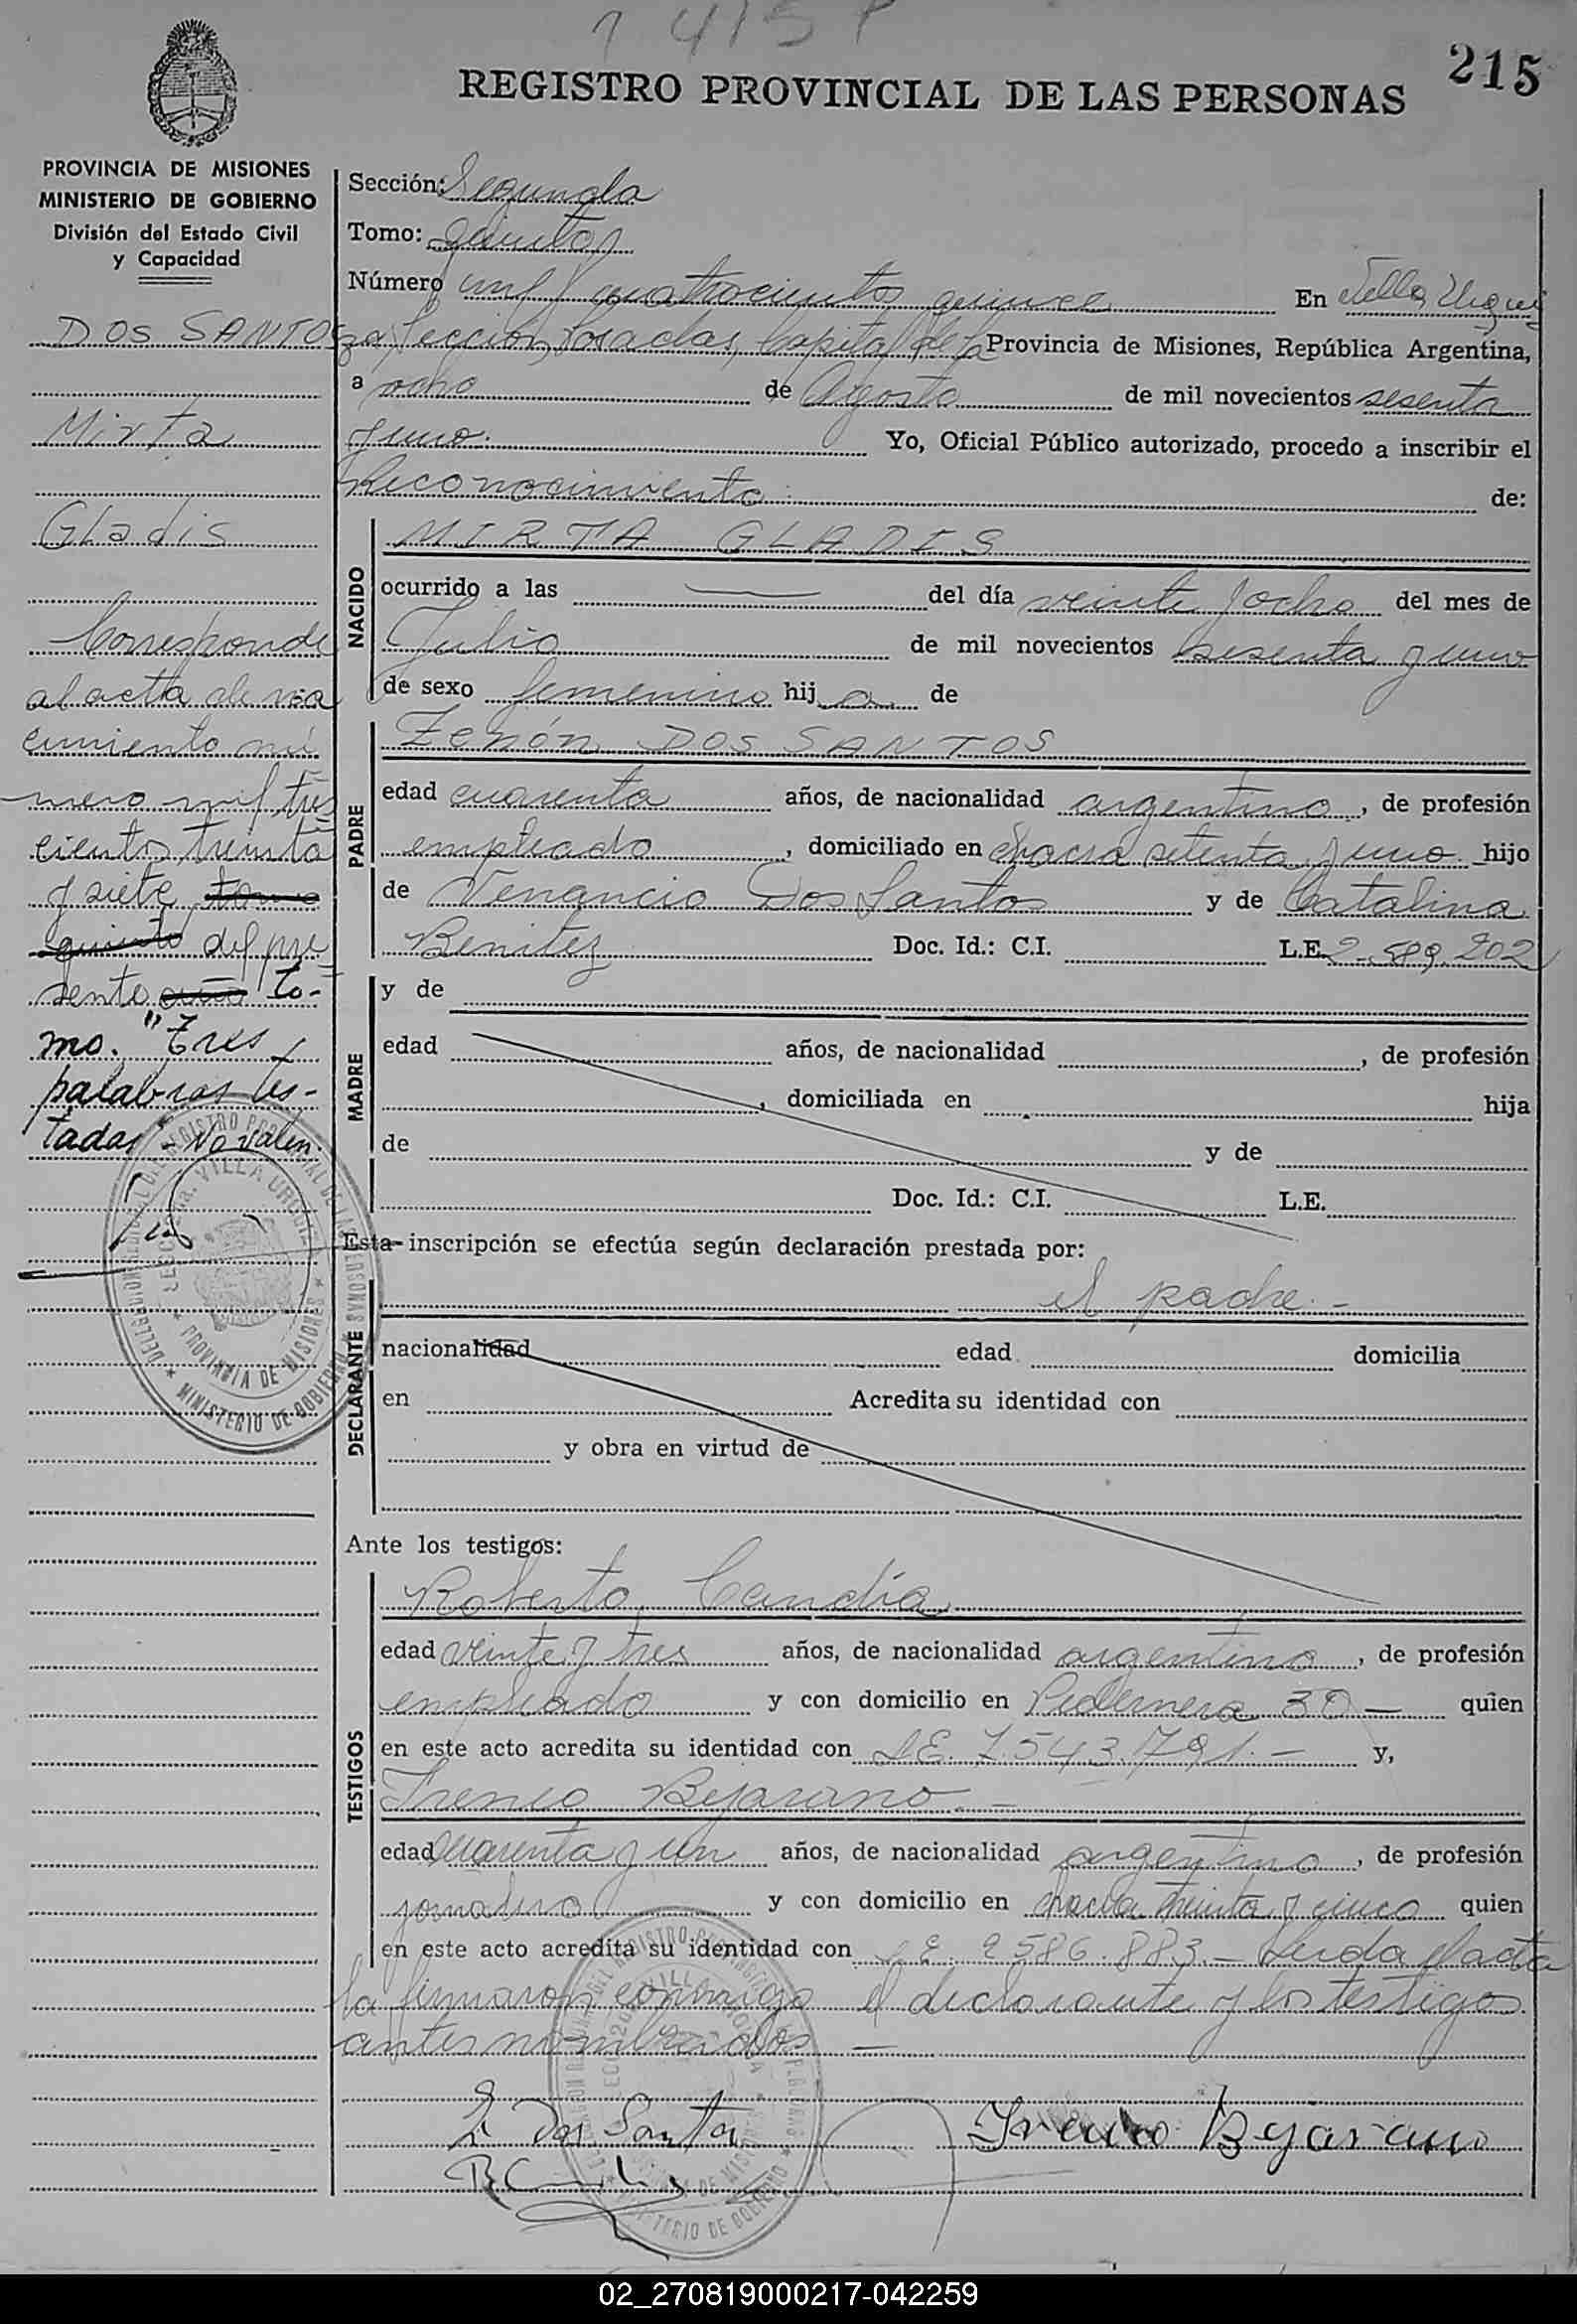 1415 P
215
REGISTRO PROVINCIAL DE LAS PERSONAS
PROVINCIA DE MISIONES
MINISTERIO DE GOBIERNO
División del Estado Civil
y Capacidad
DOS SANTOS
Mirta
Gladis
Corresponde
al acta de na
cimiento nú
mero mil tres
cientos treinta
y siete tomo
quinto del pre
sente año to-
mo. "Tres
palabras tes-
tadas" No valen.
Sección: Segunda
Tomo: quinto
Número mil cuatrocientos quince En Villa Urqui
za, Sección, Posadas, Capital de la Provincia de Misiones, República Argentina,
a ocho de Agosto de mil novecientos sesenta
y uno. Yo, Oficial Público autorizado, procedo a inscribir el
Reconocimiento de:
NACIDO
MIRTA GLADIS
ocurrido a las — del día veinte y ocho del mes de
Julio de mil novecientos sesenta y uno
de sexo femenino hij a de
PADRE
Zenón DOS SANTOS
edad cuarenta años, de nacionalidad argentino, de profesión
empleado, domiciliado en chacra setenta y uno hijo
de Venancio Dos Santos y de Catalina
Benitez Doc. Id.: C.I. L.E. 2.589.202
MADRE
y de
edad años, de nacionalidad , de profesión
, domiciliada en hija
de y de
Doc. Id.: C.I. L.E.
Esta inscripción se efectúa según declaración prestada por:
DECLARANTE
el padre.-
nacionalidad edad domicilia
en Acredita su identidad con
y obra en virtud de
Ante los testigos:
TESTIGOS
Roberto Candia
edad veinte y tres años, de nacionalidad argentino, de profesión
empleado y con domicilio en Pedernera 30 — quien
en este acto acredita su identidad con L.E. 7.543.791.- y,
Ireneo Bejarano.-
edad cuarenta y un años, de nacionalidad argentino, de profesión
jornalero y con domicilio en chacra treinta y cinco quien
en este acto acredita su identidad con L.E. 2586.883.- Leida el acta
la firmaron conmigo el declarante y los testigos
antes nombrados —
Z Dos Santos
Ireneo Bejarano
02_270819000217-042259